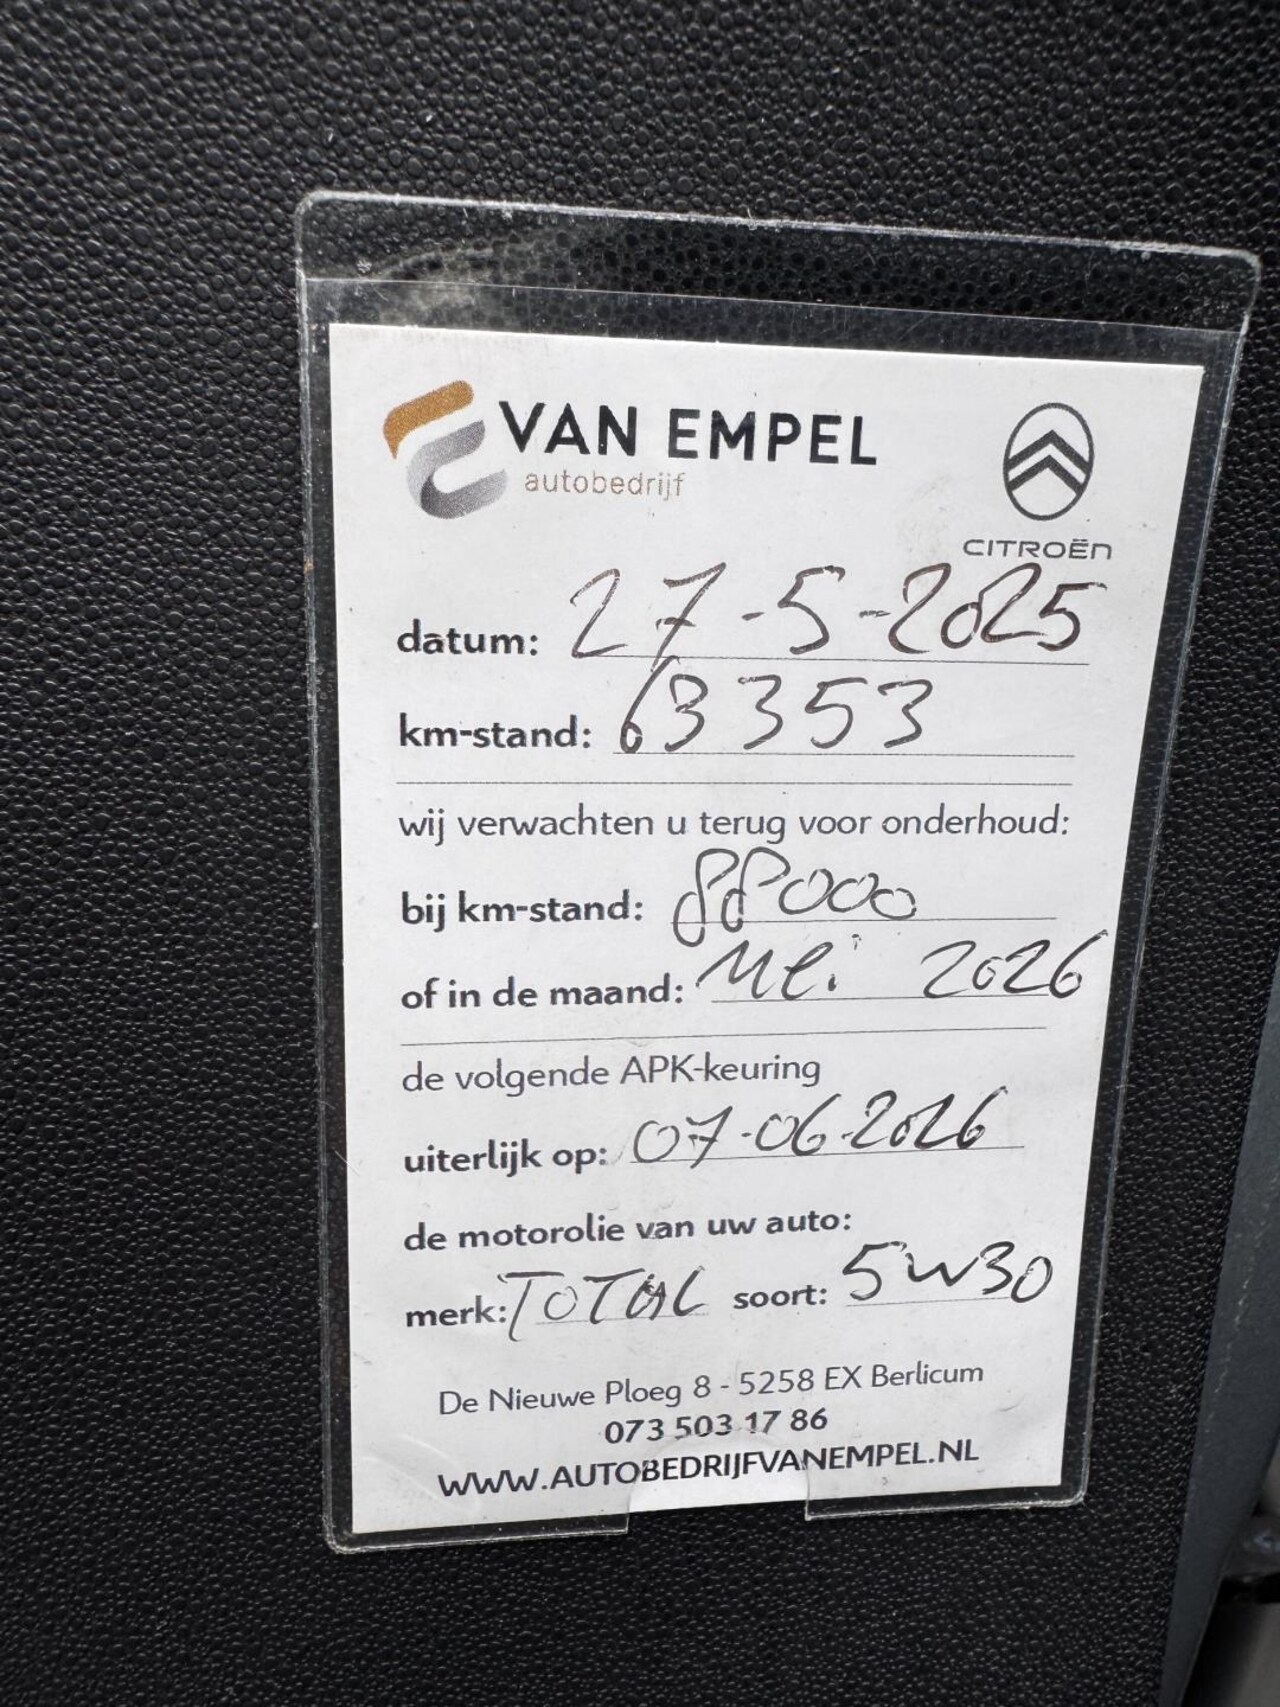 VAN EMPEL
autobedrijf
CITROËN
datum: 27-5-2025
km-stand: 63353
wij verwachten u terug voor onderhoud:
bij km-stand: 88000
of in de maand: Mei 2026
de volgende APK-keuring
uiterlijk op: 07-06-2026
de motorolie van uw auto:
merk: TOTAL soort: 5W30
De Nieuwe Ploeg 8 - 5258 EX Berlicum
073 503 17 86
WWW.AUTOBEDRIJFVANEMPEL.NL